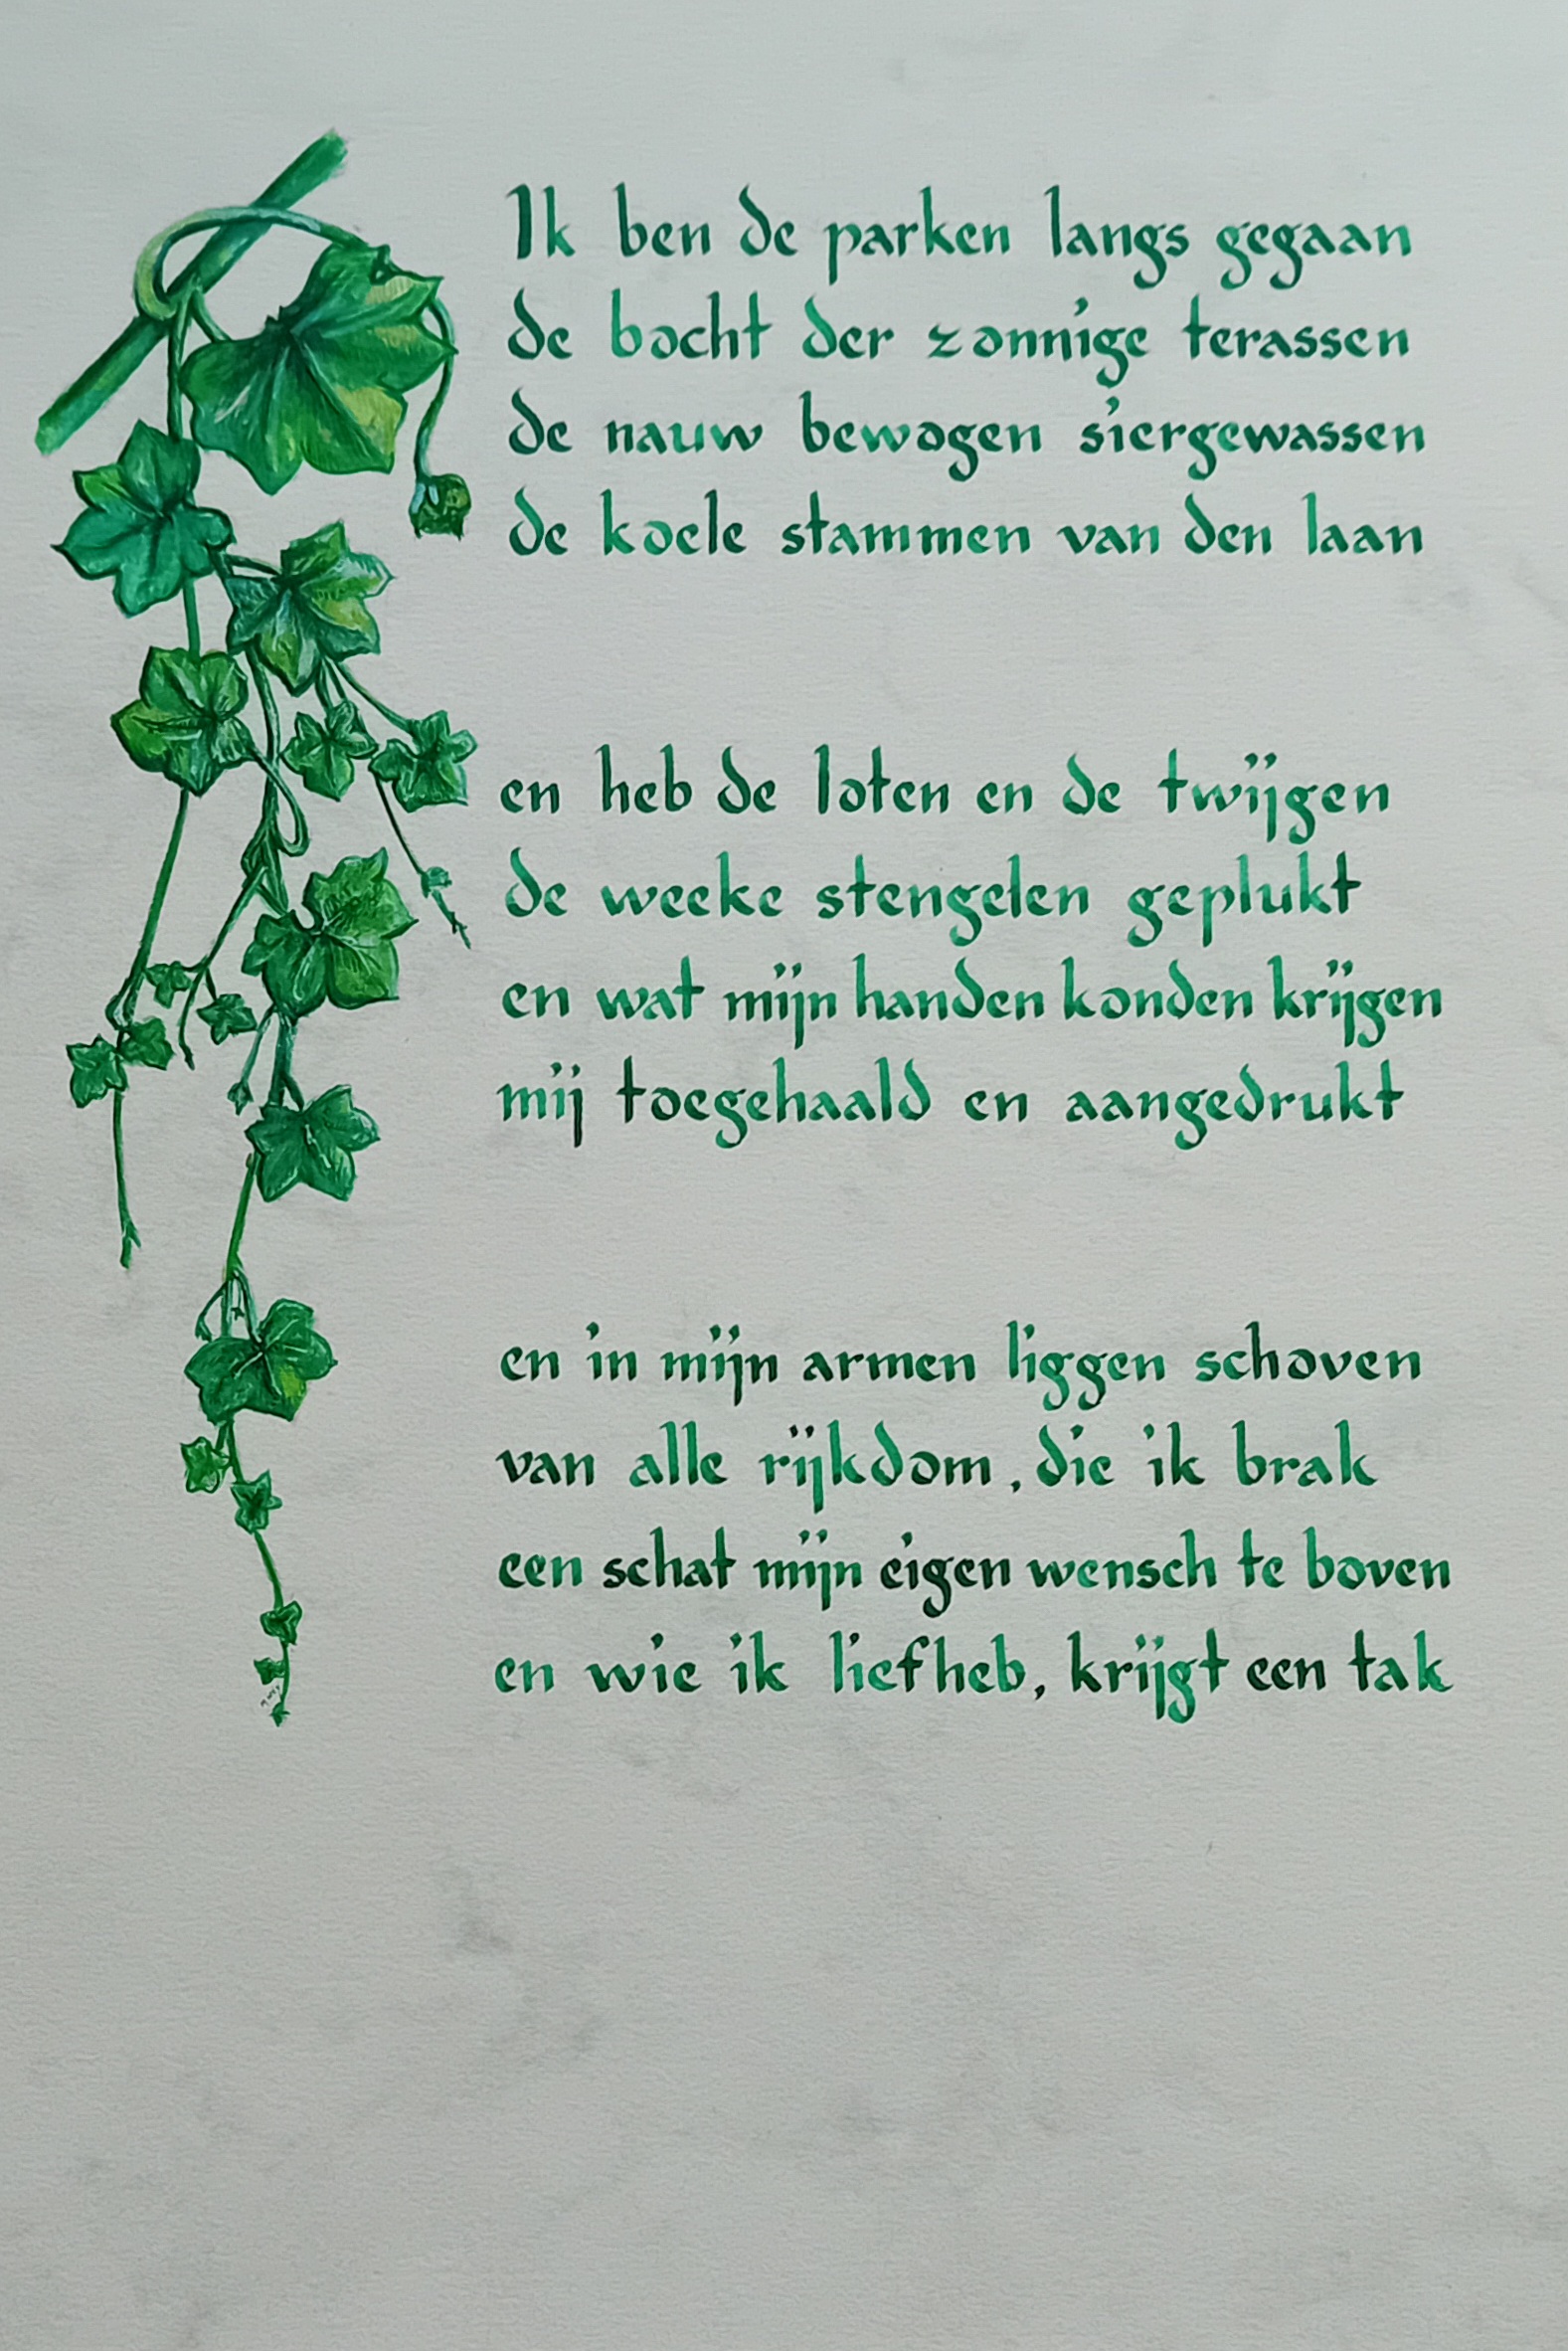 Ik ben de parken langs gegaan
de bocht der zonnige terassen
de nauw bewogen siergewassen
de koele stammen van den laan
en heb de loten en de twijgen
de weeke stengelen geplukt
en wat mijn handen konden krijgen
mij toegehaald en aangedrukt
en in mijn armen liggen schoven
van alle rijkdom, die ik brak
een schat mijn eigen wensch te boven
en wie ik liefheb, krijgt een tak